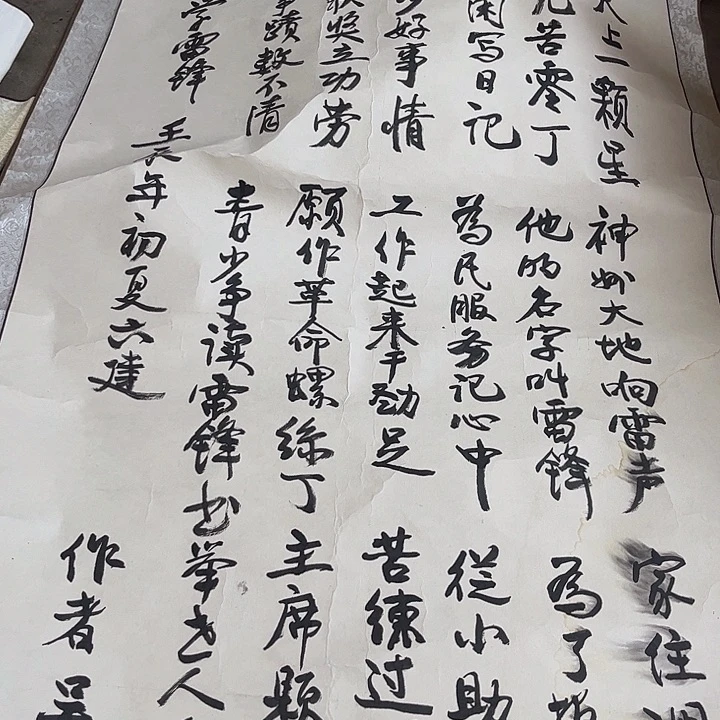 上一颗星 神州大地响雷声 家住
苦零丁 他的名字叫雷锋 為了
写日记 為民服务记心中 從小助
好事情 工作起来干劲足 苦練过
奖立功劳 願作革命螺絲丁 主席题
蹟数不清 青少争读雷锋书 举世人
学雷锋
年初夏六建
作者